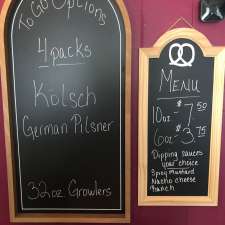 To Go Options
4 packs
Kölsch
German Pilsner
32oz Growlers
MENU
10oz - $7.50
6oz - $3.75
Dipping sauces
your choice
Spicy Mustard
Nacho cheese
Ranch